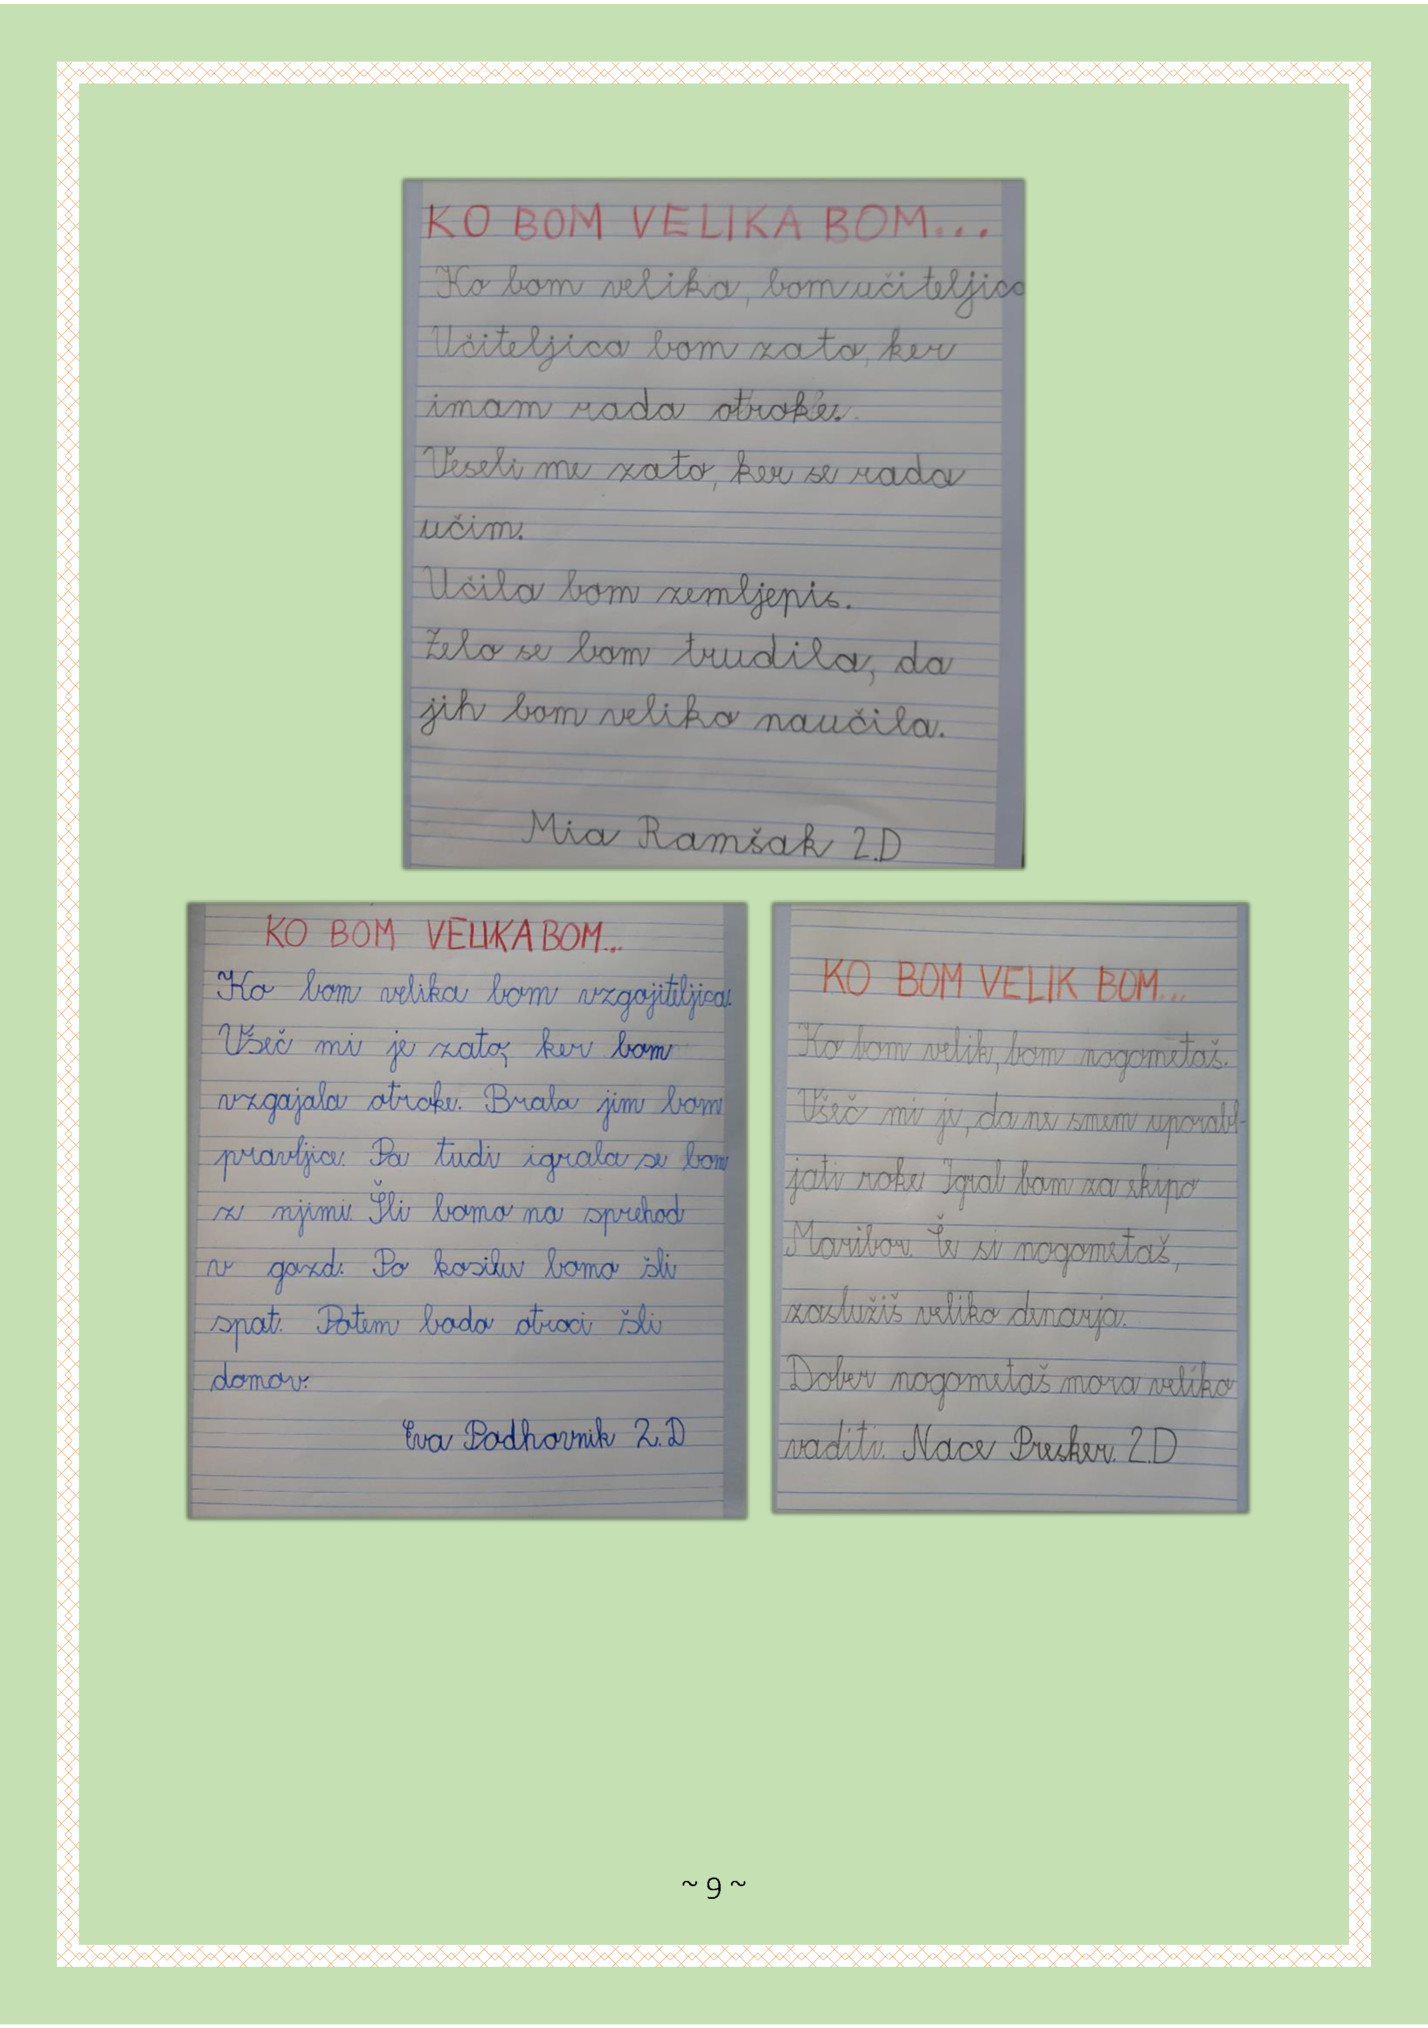 KO BOM VELIKA BOM...
Ko bom velika, bom učiteljica
Učiteljica bom zato, ker
imam rada otroke.
Veseli me zato, ker se rada
učim.
Učila bom zemljepis.
Zelo se bom trudila, da
jih bom veliko naučila.
Mia Ramšak 2.D
KO BOM VELIKA BOM...
Ko bom velika bom vzgojiteljica.
Všeč mi je zato, ker bom
vzgajala otroke. Brala jim bom
pravljice. Pa tudi igrala se bom
z njimi. Šli bomo na sprehod
v gozd. Po kosilu bomo šli
spat. Potem bodo otroci šli
domov.
Eva Podhovnik 2.D
KO BOM VELIK BOM...
Ko bom velik, bom nogometaš.
Všeč mi je, da ne smem uporabl-
jati roke. Igral bom za ekipo
Maribor. Če si nogometaš,
zaslužiš veliko denarja.
Dober nogometaš mora veliko
vaditi. Nace Presker. 2.D
~ 9 ~